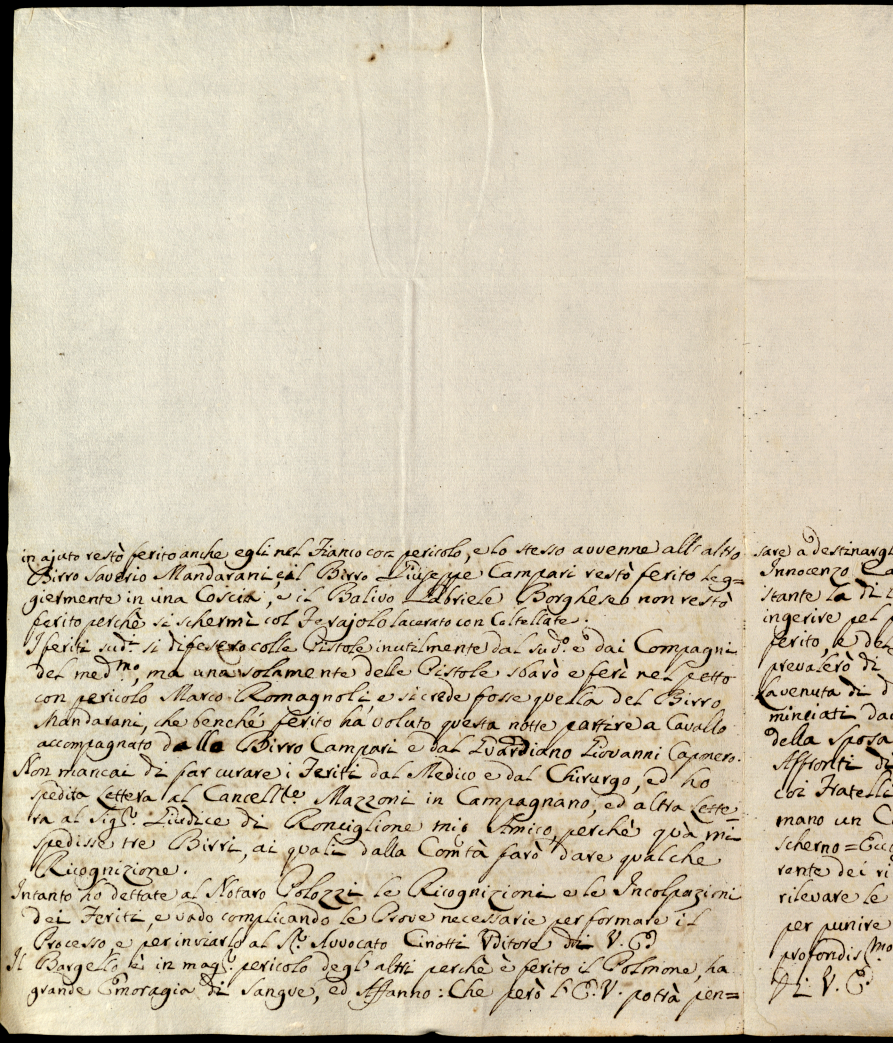 in ajuto restò ferito anche egli nel Fianco con pericolo, e lo stesso avvenne all' altro
Birro Saverio Mandarani, e il Birro Giuseppe Campari restò ferito leg=
giermente in una Coscia, e il Balivo Gabriele Borghese non restò
ferito perchè si schermì col Ferajolo lacerato con Coltellate.
I feriti sud.ⁱ si difesero colle Pistole inutilmente dal sud.º e dai Compagni
del med.mo, ma una solamente delle Pistole sbarò e ferì nel petto
con pericolo Marco Romagnoli, e si crede fosse quella del Birro
Mandarani, che benchè ferito ha voluto questa notte partire a Cavallo
accompagnato dallo Birro Campari e dal Guardiano Giovanni Caponero.
Non mancai di far curare i Feriti dal Medico e dal Chirurgo, ed ho
spedita Lettera al Cancell.re Mazzoni in Campagnano, ed altra Lette=
ra al Sig.r Giudice di Ronciglione mio Amico, perchè quà mi
spedisse tre Birri, ai quali dalla Com.tà farò dare qualche
Ricognizione.
Intanto ho dettate al Notaro Polozzi le Ricognizioni e le Incolpazioni
dei Feriti, e vado complicando le Prove necessarie per formare il
Processo, e per inviarlo al S.r Avvocato Cinotti Uditore di V. E.
Il Bargello è in mag.r pericolo degl' altri perchè è ferito il Polmone, ha
grande Emoragia di Sangue, ed Affanno: Che però l' E. V. potrà pen=
sare a destinargl
Innocenzo
istante la di
ingerire pel
ferito, e
prevalerò di
la venuta di
minciati
della Sposa
Affronti di
coi Fratelli
mano un
scherno =
rente dei
rilevare le
per punire
profondis.mo
Di V. E.